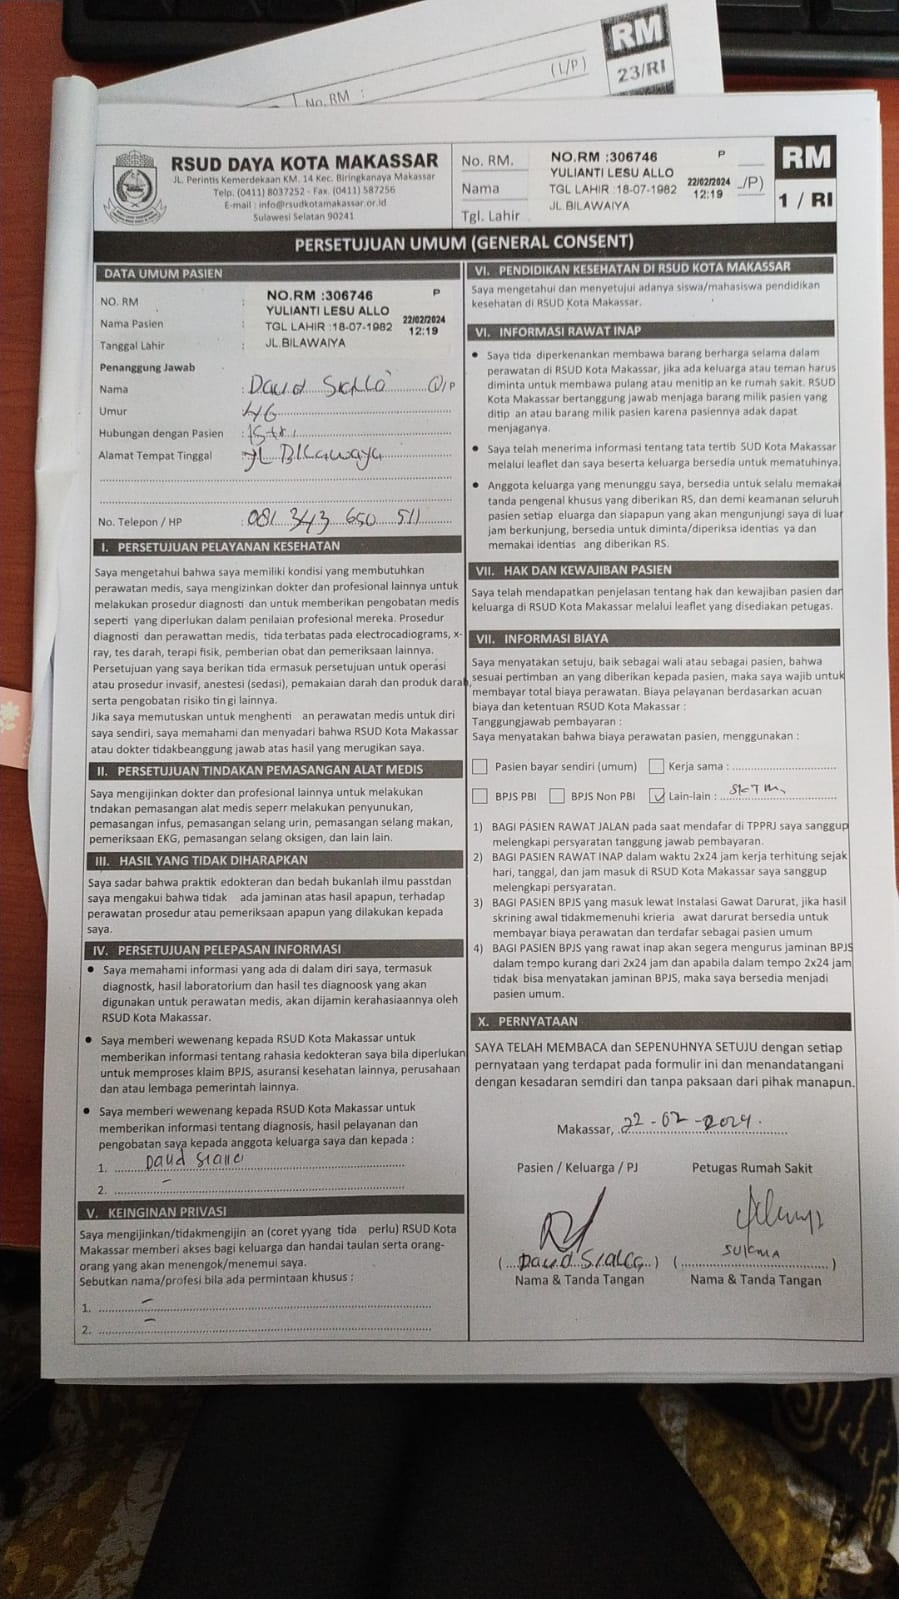 RM
23/RI
(L/P)
No. RM :
RSUD DAYA KOTA MAKASSAR
JL. Perintis Kemerdekaan KM. 14 Kec. Biringkanaya Makassar
Telp. (0411) 8037252 - Fax. (0411) 587256
E-mail : info@rsudkotamakassar.or.id
Sulawesi Selatan 90241
No. RM.
Nama
Tgl. Lahir
NO.RM :306746 P
YULIANTI LESU ALLO
TGL LAHIR :18-07-1982 22/02/2024
JL.BILAWAIYA 12:19
/P)
RM
1 / RI
PERSETUJUAN UMUM (GENERAL CONSENT)
DATA UMUM PASIEN
NO. RM :
Nama Pasien :
Tanggal Lahir :
NO.RM :306746 P
YULIANTI LESU ALLO
TGL LAHIR :18-07-1982 22/02/2024
JL.BILAWAIYA 12:19
Penanggung Jawab
Nama : David L/P
Umur : 46
Hubungan dengan Pasien : Istri
Alamat Tempat Tinggal : JL Bilawaya
No. Telepon / HP : 081 343 650 511
I. PERSETUJUAN PELAYANAN KESEHATAN
Saya mengetahui bahwa saya memiliki kondisi yang membutuhkan
perawatan medis, saya mengizinkan dokter dan profesional lainnya untuk
melakukan prosedur diagnosti dan untuk memberikan pengobatan medis
seperti yang diperlukan dalam penilaian profesional mereka. Prosedur
diagnosti dan perawattan medis, tida terbatas pada electrocadiograms, x-
ray, tes darah, terapi fisik, pemberian obat dan pemeriksaan lainnya.
Persetujuan yang saya berikan tida ermasuk persetujuan untuk operasi
atau prosedur invasif, anestesi (sedasi), pemakaian darah dan produk darah,
serta pengobatan risiko tin gi lainnya.
Jika saya memutuskan untuk menghenti an perawatan medis untuk diri
saya sendiri, saya memahami dan menyadari bahwa RSUD Kota Makassar
atau dokter tidakbeanggung jawab atas hasil yang merugikan saya.
II. PERSETUJUAN TINDAKAN PEMASANGAN ALAT MEDIS
Saya mengijinkan dokter dan profesional lainnya untuk melakukan
tndakan pemasangan alat medis seperr melakukan penyunukan,
pemasangan infus, pemasangan selang urin, pemasangan selang makan,
pemeriksaan EKG, pemasangan selang oksigen, dan lain lain.
III. HASIL YANG TIDAK DIHARAPKAN
Saya sadar bahwa praktik edokteran dan bedah bukanlah ilmu passtdan
saya mengakui bahwa tidak ada jaminan atas hasil apapun, terhadap
perawatan prosedur atau pemeriksaan apapun yang dilakukan kepada
saya.
IV. PERSETUJUAN PELEPASAN INFORMASI
• Saya memahami informasi yang ada di dalam diri saya, termasuk
diagnostk, hasil laboratorium dan hasil tes diagnoosk yang akan
digunakan untuk perawatan medis, akan dijamin kerahasiaannya oleh
RSUD Kota Makassar.
• Saya memberi wewenang kepada RSUD Kota Makassar untuk
memberikan informasi tentang rahasia kedokteran saya bila diperlukan
untuk memproses klaim BPJS, asuransi kesehatan lainnya, perusahaan
dan atau lembaga pemerintah lainnya.
• Saya memberi wewenang kepada RSUD Kota Makassar untuk
memberikan informasi tentang diagnosis, hasil pelayanan dan
pengobatan saya kepada anggota keluarga saya dan kepada :
1. Daud
2. -
V. KEINGINAN PRIVASI
Saya mengijinkan/tidakmengijin an (coret yyang tida perlu) RSUD Kota
Makassar memberi akses bagi keluarga dan handai taulan serta orang-
orang yang akan menengok/menemui saya.
Sebutkan nama/profesi bila ada permintaan khusus :
1. -
2. -
VI. PENDIDIKAN KESEHATAN DI RSUD KOTA MAKASSAR
Saya mengetahui dan menyetujui adanya siswa/mahasiswa pendidikan
kesehatan di RSUD Kota Makassar.
VI. INFORMASI RAWAT INAP
• Saya tida diperkenankan membawa barang berharga selama dalam
perawatan di RSUD Kota Makassar, jika ada keluarga atau teman harus
diminta untuk membawa pulang atau menitip an ke rumah sakit. RSUD
Kota Makassar bertanggung jawab menjaga barang milik pasien yang
ditip an atau barang milik pasien karena pasiennya adak dapat
menjaganya.
• Saya telah menerima informasi tentang tata tertib SUD Kota Makassar
melalui leaflet dan saya beserta keluarga bersedia untuk mematuhinya.
• Anggota keluarga yang menunggu saya, bersedia untuk selalu memakai
tanda pengenal khusus yang diberikan RS, dan demi keamanan seluruh
pasien setiap eluarga dan siapapun yang akan mengunjungi saya di luar
jam berkunjung, bersedia untuk diminta/diperiksa identias ya dan
memakai identias ang diberikan RS.
VII. HAK DAN KEWAJIBAN PASIEN
Saya telah mendapatkan penjelasan tentang hak dan kewajiban pasien dan
keluarga di RSUD Kota Makassar melalui leaflet yang disediakan petugas.
VII. INFORMASI BIAYA
Saya menyatakan setuju, baik sebagai wali atau sebagai pasien, bahwa
sesuai pertimban an yang diberikan kepada pasien, maka saya wajib untuk
membayar total biaya perawatan. Biaya pelayanan berdasarkan acuan
biaya dan ketentuan RSUD Kota Makassar :
Tanggungjawab pembayaran :
Saya menyatakan bahwa biaya perawatan pasien, menggunakan :
Pasien bayar sendiri (umum) Kerja sama :
BPJS PBI BPJS Non PBI Lain-lain : SKTM
1) BAGI PASIEN RAWAT JALAN pada saat mendafar di TPPRJ saya sanggup
melengkapi persyaratan tanggung jawab pembayaran.
2) BAGI PASIEN RAWAT INAP dalam waktu 2x24 jam kerja terhitung sejak
hari, tanggal, dan jam masuk di RSUD Kota Makassar saya sanggup
melengkapi persyaratan.
3) BAGI PASIEN BPJS yang masuk lewat Instalasi Gawat Darurat, jika hasil
skrining awal tidakmemenuhi krieria awat darurat bersedia untuk
membayar biaya perawatan dan terdafar sebagai pasien umum
4) BAGI PASIEN BPJS yang rawat inap akan segera mengurus jaminan BPJS
dalam tempo kurang dari 2x24 jam dan apabila dalam tempo 2x24 jam
tidak bisa menyatakan jaminan BPJS, maka saya bersedia menjadi
pasien umum.
X. PERNYATAAN
SAYA TELAH MEMBACA dan SEPENUHNYA SETUJU dengan setiap
pernyataan yang terdapat pada formulir ini dan menandatangani
dengan kesadaran semdiri dan tanpa paksaan dari pihak manapun.
Makassar, 22-02-2024.
Pasien / Keluarga / PJ Petugas Rumah Sakit
(Daud) (SUKMA)
Nama & Tanda Tangan Nama & Tanda Tangan